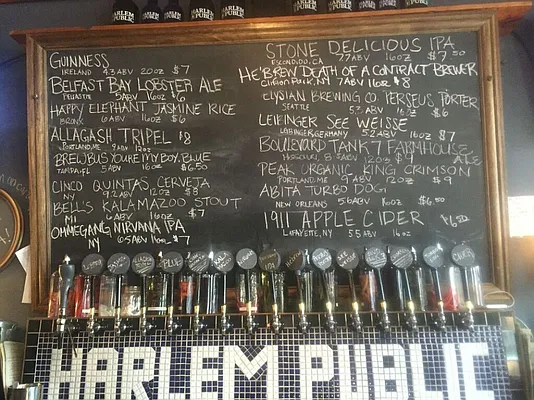 GUINNESS
IRELAND 4.3 ABV 20oz $7
BELFAST BAY LOBSTER ALE
5ABV 16oz
HAPPY ELEPHANT JASMINE RICE
BRONX 6ABV 16oz $6
ALLAGASH TRIPEL $8
PORTLAND, ME 9ABV 12oz
BREW BUS YOU'RE MY BOY, BLUE
TAMPA, FL 5ABV 16oz $6.50
CINCO QUINTAS CERVEJA
NY 9.2ABV 12oz $8
BELL'S KALAMAZOO STOUT
MI 6ABV 16oz $7
OHMEGANG NIRVANA IPA
NY 6.5ABV 16oz $7
STONE DELICIOUS IPA
ESCONDIDO, CA 7.7ABV 16oz $7.50
HE'BREW DEATH OF A CONTRACT BREWER
CLIFTON PARK, NY 7ABV 16oz $8
ELYSIAN BREWING CO PERSEUS PORTER
SEATTLE 5ABV 16oz $6
LEIBINGER SEE WEISSE
GERMANY 5.2ABV 16oz $7
BOULEVARD TANK 7 FARMHOUSE ALE
MISSOURI 8.5ABV 12oz $9
PEAK ORGANIC KING CRIMSON
PORTLAND, ME 9ABV 12oz $9
ABITA TURBO DOG
NEW ORLEANS 5.6ABV 16oz $6.50
1911 APPLE CIDER $6.50
LAFAYETTE, NY 5.5ABV 16oz
HARLEM PUBLIC